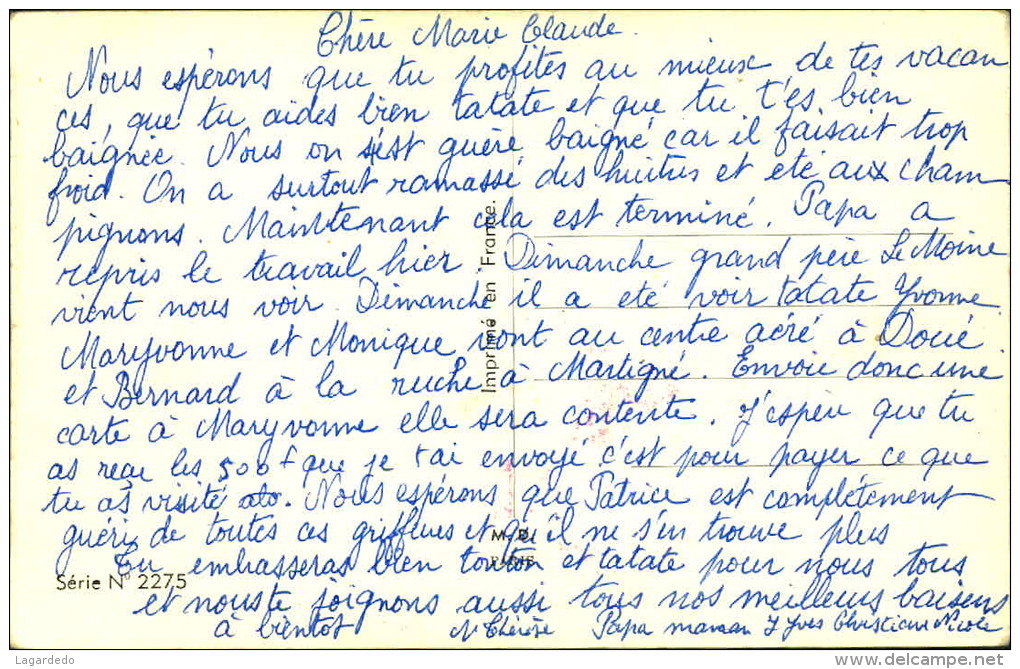 Chère Marie Claude.
Nous espérons que tu profites au mieux de tes vacan
ces, que tu aides bien tatate et que tu t'es bien
baignée. Nous on s'est guère baigné car il faisait trop
froid. On a surtout ramassé des huitres et été aux cham
pignons. Maintenant cela est terminé. Papa a
repris le travail hier. Dimanche grand père Le Moine
vient nous voir. Dimanche il a été voir tatate Yvonne
Maryvonne et Monique vont au centre aéré à Doué
et Bernard à la ruche à Martigné. Envoie donc une
carte à Maryvonne elle sera contente. J'espère que tu
as reçu les 500 f que je t'ai envoyé c'est pour payer ce que
tu as visité. Nous espérons que Patrice est complétement
guéri de toutes ces griffures et qu'il ne s'en trouve plus
Tu embrasseras bien tonton et tatate pour nous tous
Série N° 2275
et nous te joignons aussi tous nos meilleurs baisers
à bientôt
M Thérèse Papa maman J Yves Christian Nicole
Imprimé en France.
M. D.
PARIS
Lagardedo
©delcampe.net